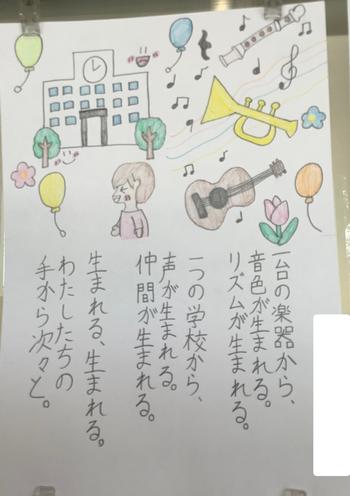 一台の楽器から、
音色が生まれる。
リズムが生まれる。
一つの学校から、
声が生まれる。
仲間が生まれる。
生まれる、生まれる。
わたしたちの
手から次々と。